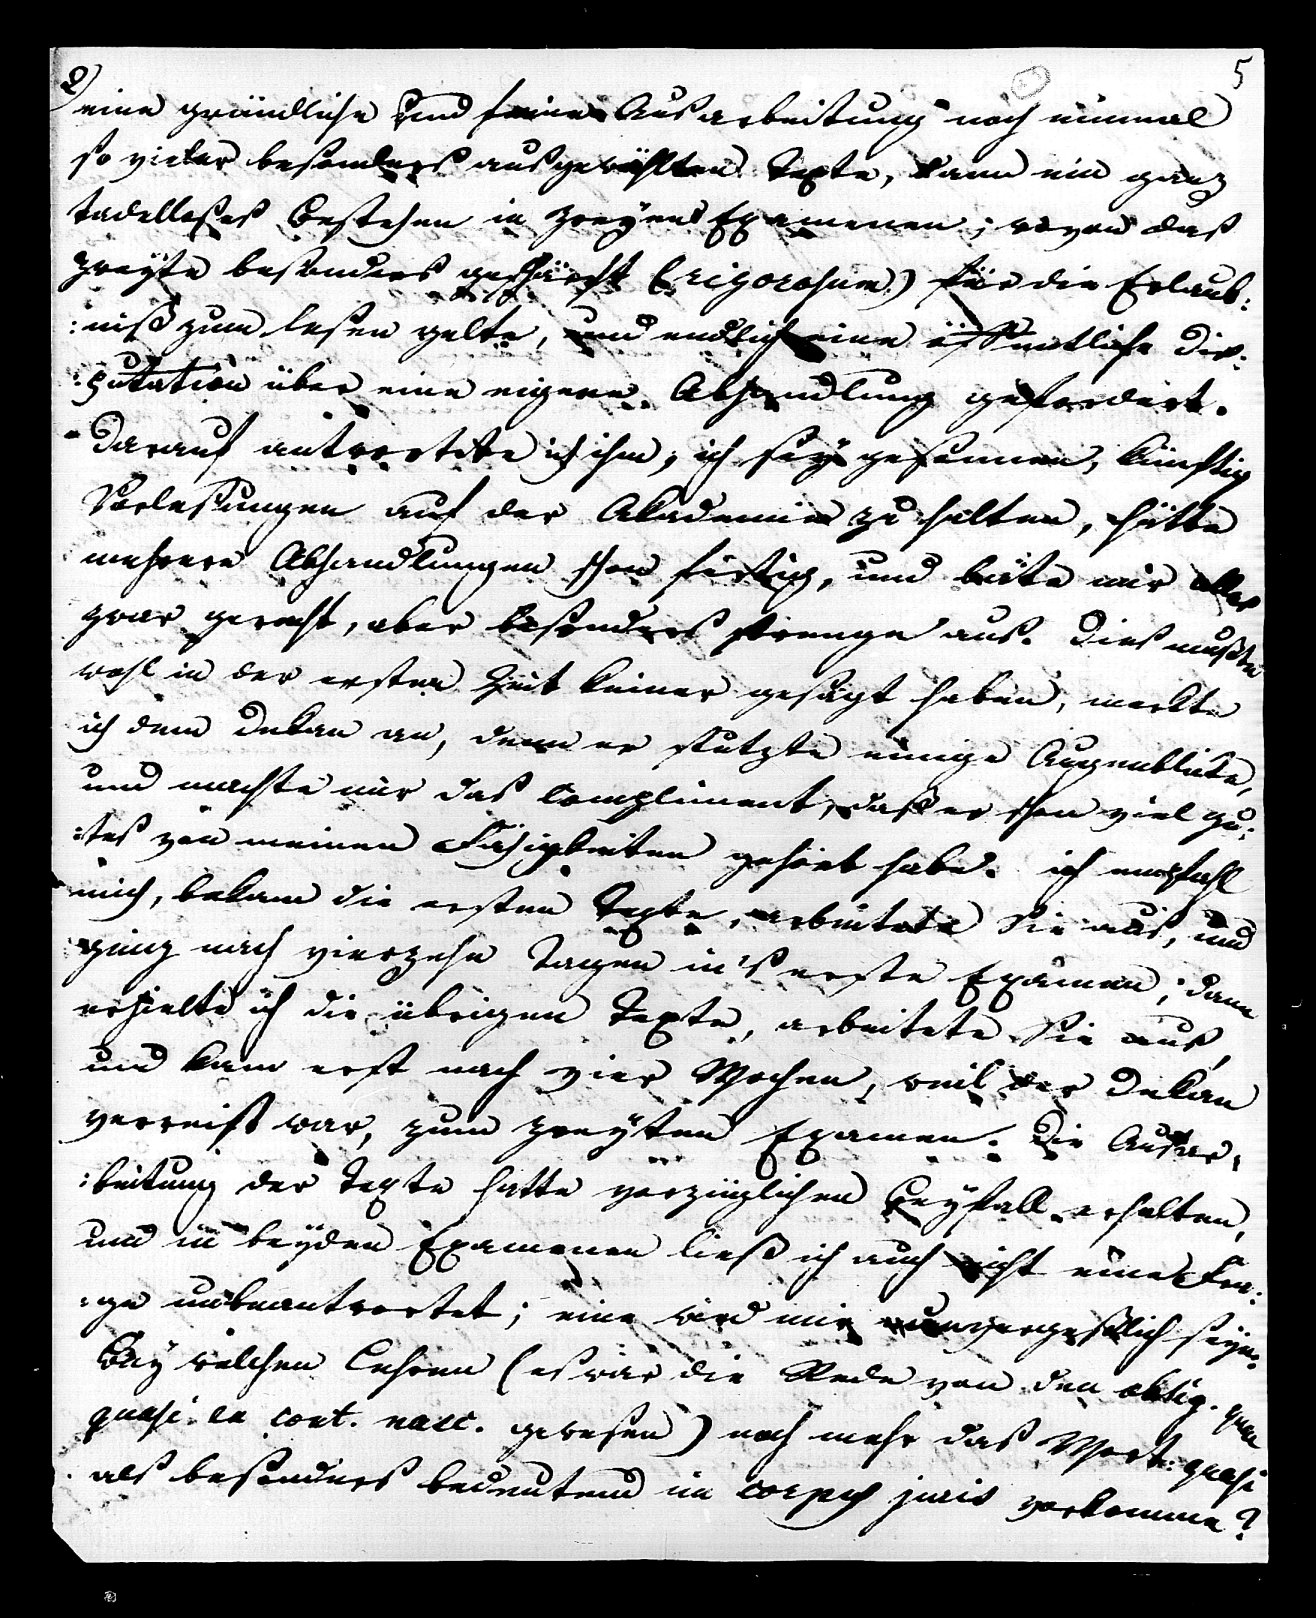 2) 5
eine gründliche und feine Ausarbeitung noch einmal
so vieler besonders ausgewählten Texte, dann ein ganz
tadelloses Bestehen in zweyen Examenen; wovon das
zweyte besonders geschärft (rigorosum) für die Erlaub:
:niß zum lesen gelte, und endlich eine öffentliche Dis:
:putation über eine eigene Abhandlung gefordert.
Darauf antwortete ich ihm, ich sey gesonnen, künftig
Vorlesungen auf der Akademie zu halten, hätte
mehrere Abhandlungen schon fertig, und bäte mir alles
zwar gerecht, aber besonders strenge aus. Dies mußte
wohl in der ersten Zeit keiner gesagt haben, merkte
ich dem Dekan an, denn er stutzte einige Augenblicke,
und machte mir das Compliment, daß er schon viel gu:
:tes von meinen Fähigkeiten gehört habe. ich empfahl
mich, bekam die ersten Texte, arbeitete Sie aus, und
ging nach vierzehn Tagen in's erste Examen; dann
erhielte ich die übrigen Texte, arbeitete Sie aus,
und kam erst nach vier Wochen, weil der Dekan
verreist war, zum zweyten Examen. Die Ausar:
:beitung der Texte hatte vorzüglichen Beyfall erhalten,
und in beyden Examenen ließ ich auch nicht eine Fra:
:ge unbeantwortet; eine wird mir unvergeßlich seyn:
Bey welchen Lehren (es war die Rede von den oblig. quae
quasi ex cont. nasc. gewesen) noch mehr das Wort: quasi
als besonders bedeutend im corpus juris vorkomme?